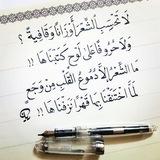 لا تحسبنَّ الشعرَ أوزانًا وقافيةً ؟
ولا حروفًا على لوحٍ كتبناها !!
ما الشعرُ إلا دموعُ القلبِ من وجعٍ
لما اختنقنا بها قهرًا نزفناها !!